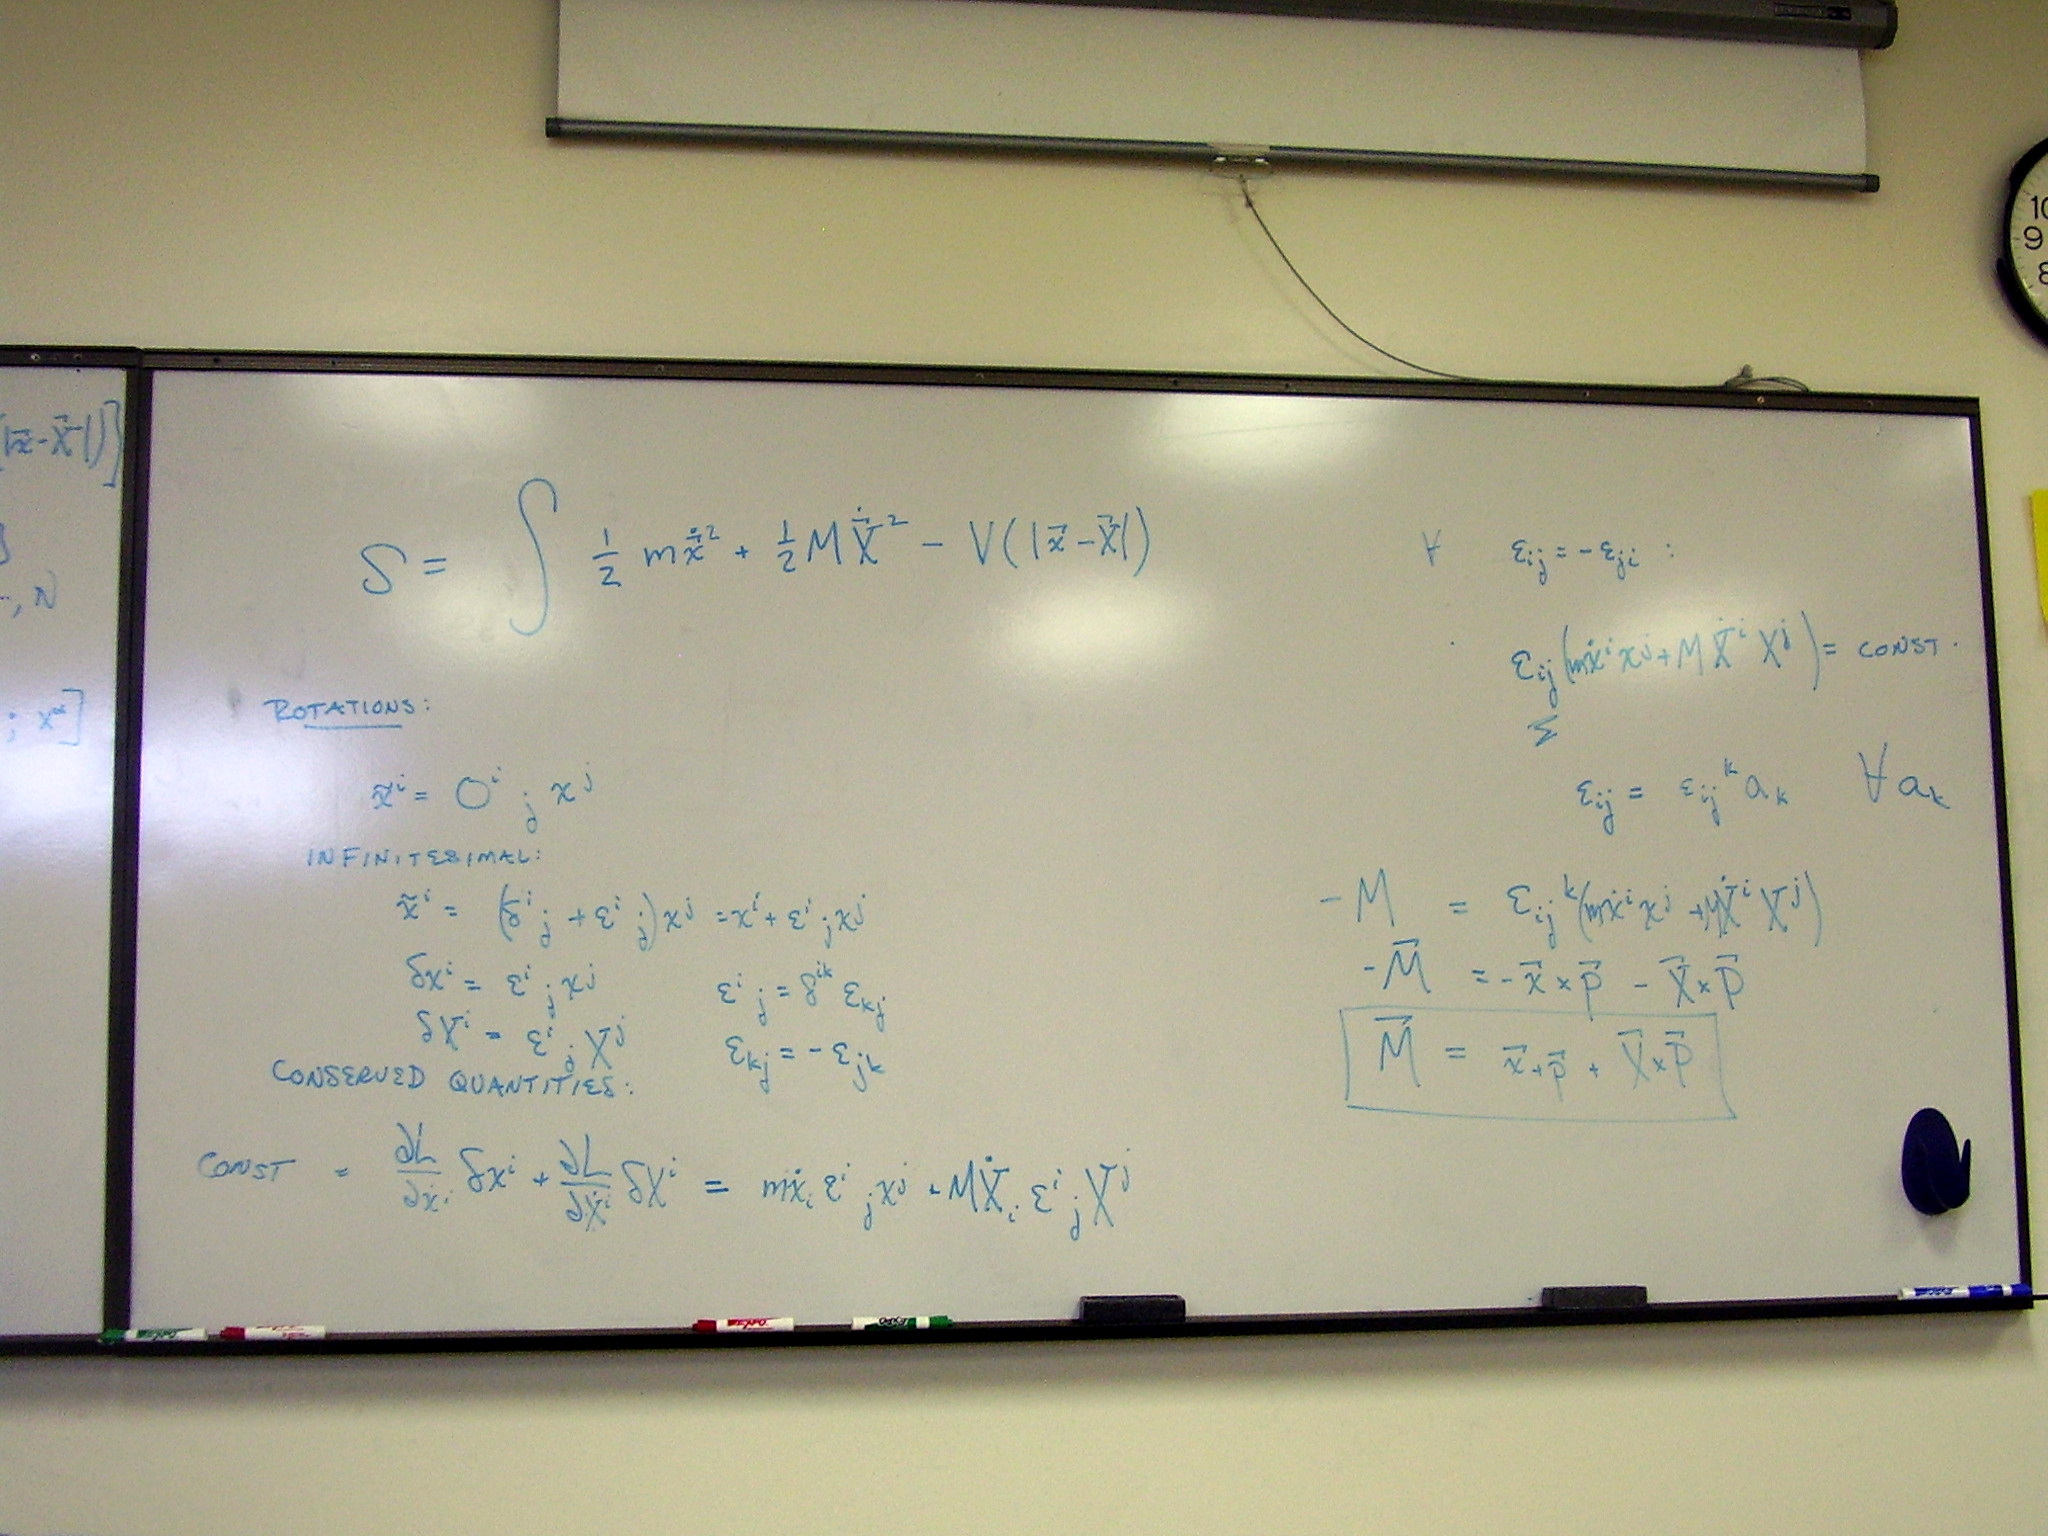 |x⃗-X⃗|)]
, N
; x^α]
S = ∫ ½ m ẋ⃗² + ½ M Ẋ⃗² - V(|x⃗-X⃗|)
ROTATIONS:
x̃ⁱ = Oⁱ_j xʲ
INFINITESIMAL:
x̃ⁱ = (δⁱ_j + εⁱ_j)xʲ = xⁱ + εⁱ_j xʲ
δxⁱ = εⁱ_j xʲ    εⁱ_j = δ^{ik} ε_{kj}
δXⁱ = εⁱ_j Xʲ    ε_{kj} = - ε_{jk}
CONSERVED QUANTITIES:
CONST = ∂L/∂ẋⁱ δxⁱ + ∂L/∂Ẋⁱ δXⁱ = mẋ_i εⁱ_j xʲ + MẊ_i εⁱ_j Xʲ
∀ ε_{ij} = - ε_{ji} :
ε_{ij}(mẋⁱxʲ + MẊⁱXʲ) = CONST.
ε_{ij} = ε_{ij}^k a_k ∀ a_k
-M = ε_{ij}^k(mẋⁱxʲ + MẊⁱXʲ)
-M⃗ = - x⃗ × p⃗ - X⃗ × P⃗
M⃗ = x⃗ + p⃗ + X⃗ × P⃗
10
9
8
EXPO